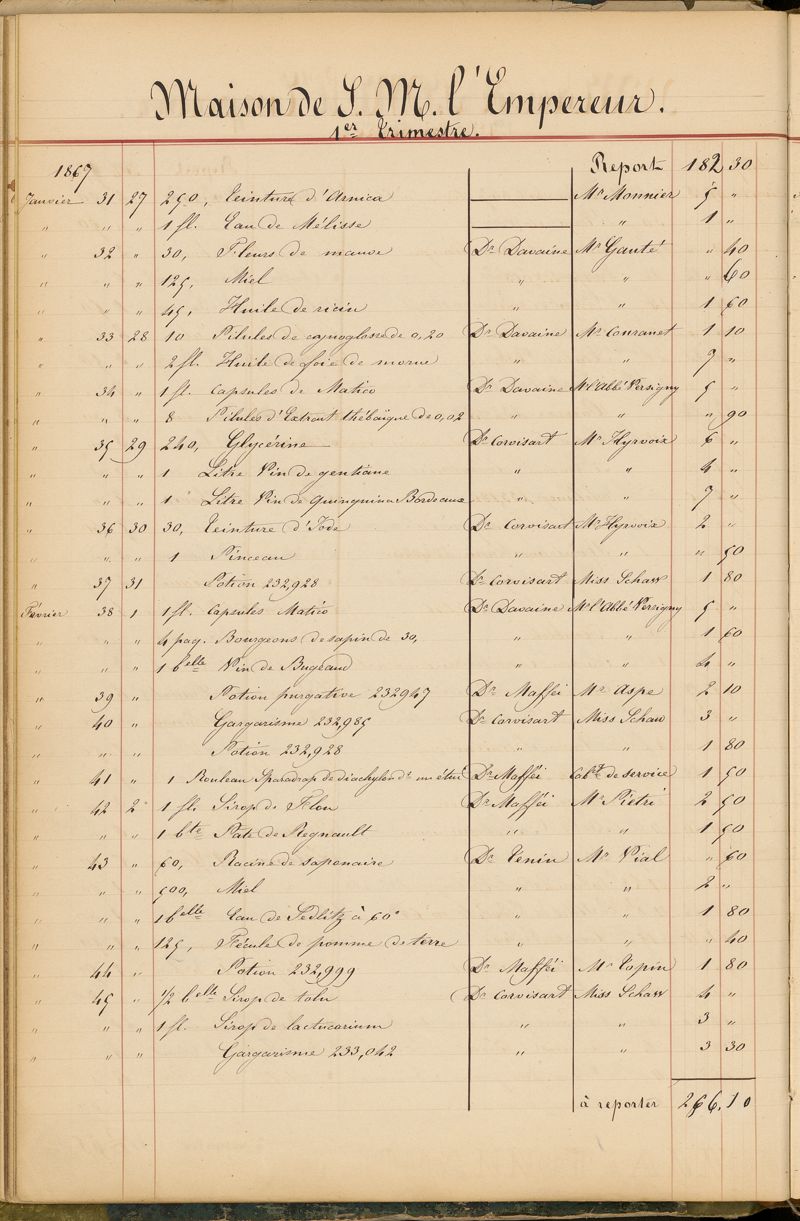 Maison de S. M. l'Empereur.
1er Trimestre.
1867 Report 182 30
Janvier 31 27 250, Teinture d'Arnica Mr Monnier 5 "
" " " 1 fl. Eau de Mélisse " 1 "
" 32 " 30, Fleurs de mauve Dr Davaine Mr Gauté " 40
" " " 125, Miel " " " 60
" " " 45, Huile de ricin " 1 60
" 33 28 10 Pilules de cynoglosse de 0,20 Dr Davaine Mr Couranet 1 10
" " " 2 fl. Huile de foie de morue " " 7 "
" 34 " 1 fl. Capsules de Matico Dr Davaine Mr l'Abbé Versigny 5 "
" " " 8 Pilules d'Extrait thébaïque de 0,02 " " " 90
" 35 29 240, Glycérine Dr Corvisart Mr Hyrvoix 6 "
" " " 1 Litre Vin de gentiane " " 4 "
" " " 1 Litre Vin de Quinquina Bordeaux " " 7 "
" 36 30 30, Teinture d'Iode Dr Corvisart Mr Hyrvoix 2 "
" " " 1 Pinceau " " " 50
" 37 31 Potion 232,928 Dr Corvisart Miss Schaw 1 80
Février 38 1 1 fl. Capsules Matico Dr Davaine Mr l'Abbé Versigny 5 "
" " " 4 paq. Bourgeons de sapin de 30, " " 1 60
" " " 1 belle Vin de Bugeaud " " 4 "
" 39 " Potion purgative 232947 Dr Mafféi Mr Aspe 2 10
" 40 " Gargarisme 232,985 Dr Corvisart Miss Schaw 3 "
" " " Potion 232,928 " " 1 80
" 41 " 1 Rouleau Sparadrap de diachylon dt un étui Dr Mafféi Cabt de service 1 50
" 42 2 1 fl. Sirop de Flon Dr Mafféi Mr Piétri 2 50
" " " 1 bte Pate de Regnault " " 1 50
" 43 " 60, Racine de saponaire Dr Tenin Mr Vial " 60
" " " 500, Miel " " 2 "
" " " 1 belle Eau de Sedlitz à 60° " " 1 80
" " " 125, Fécule de pomme de terre " " " 40
" 44 " Potion 232,999 Dr Mafféi Mr Topin 1 80
" 45 " 1/2 belle Sirop de tolu Dr Corvisart Miss Schaw 4 "
" " " 1 fl. Sirop de lactucarium " " 3 "
" " " Gargarisme 233,042 " " 3 30
à reporter 266,10